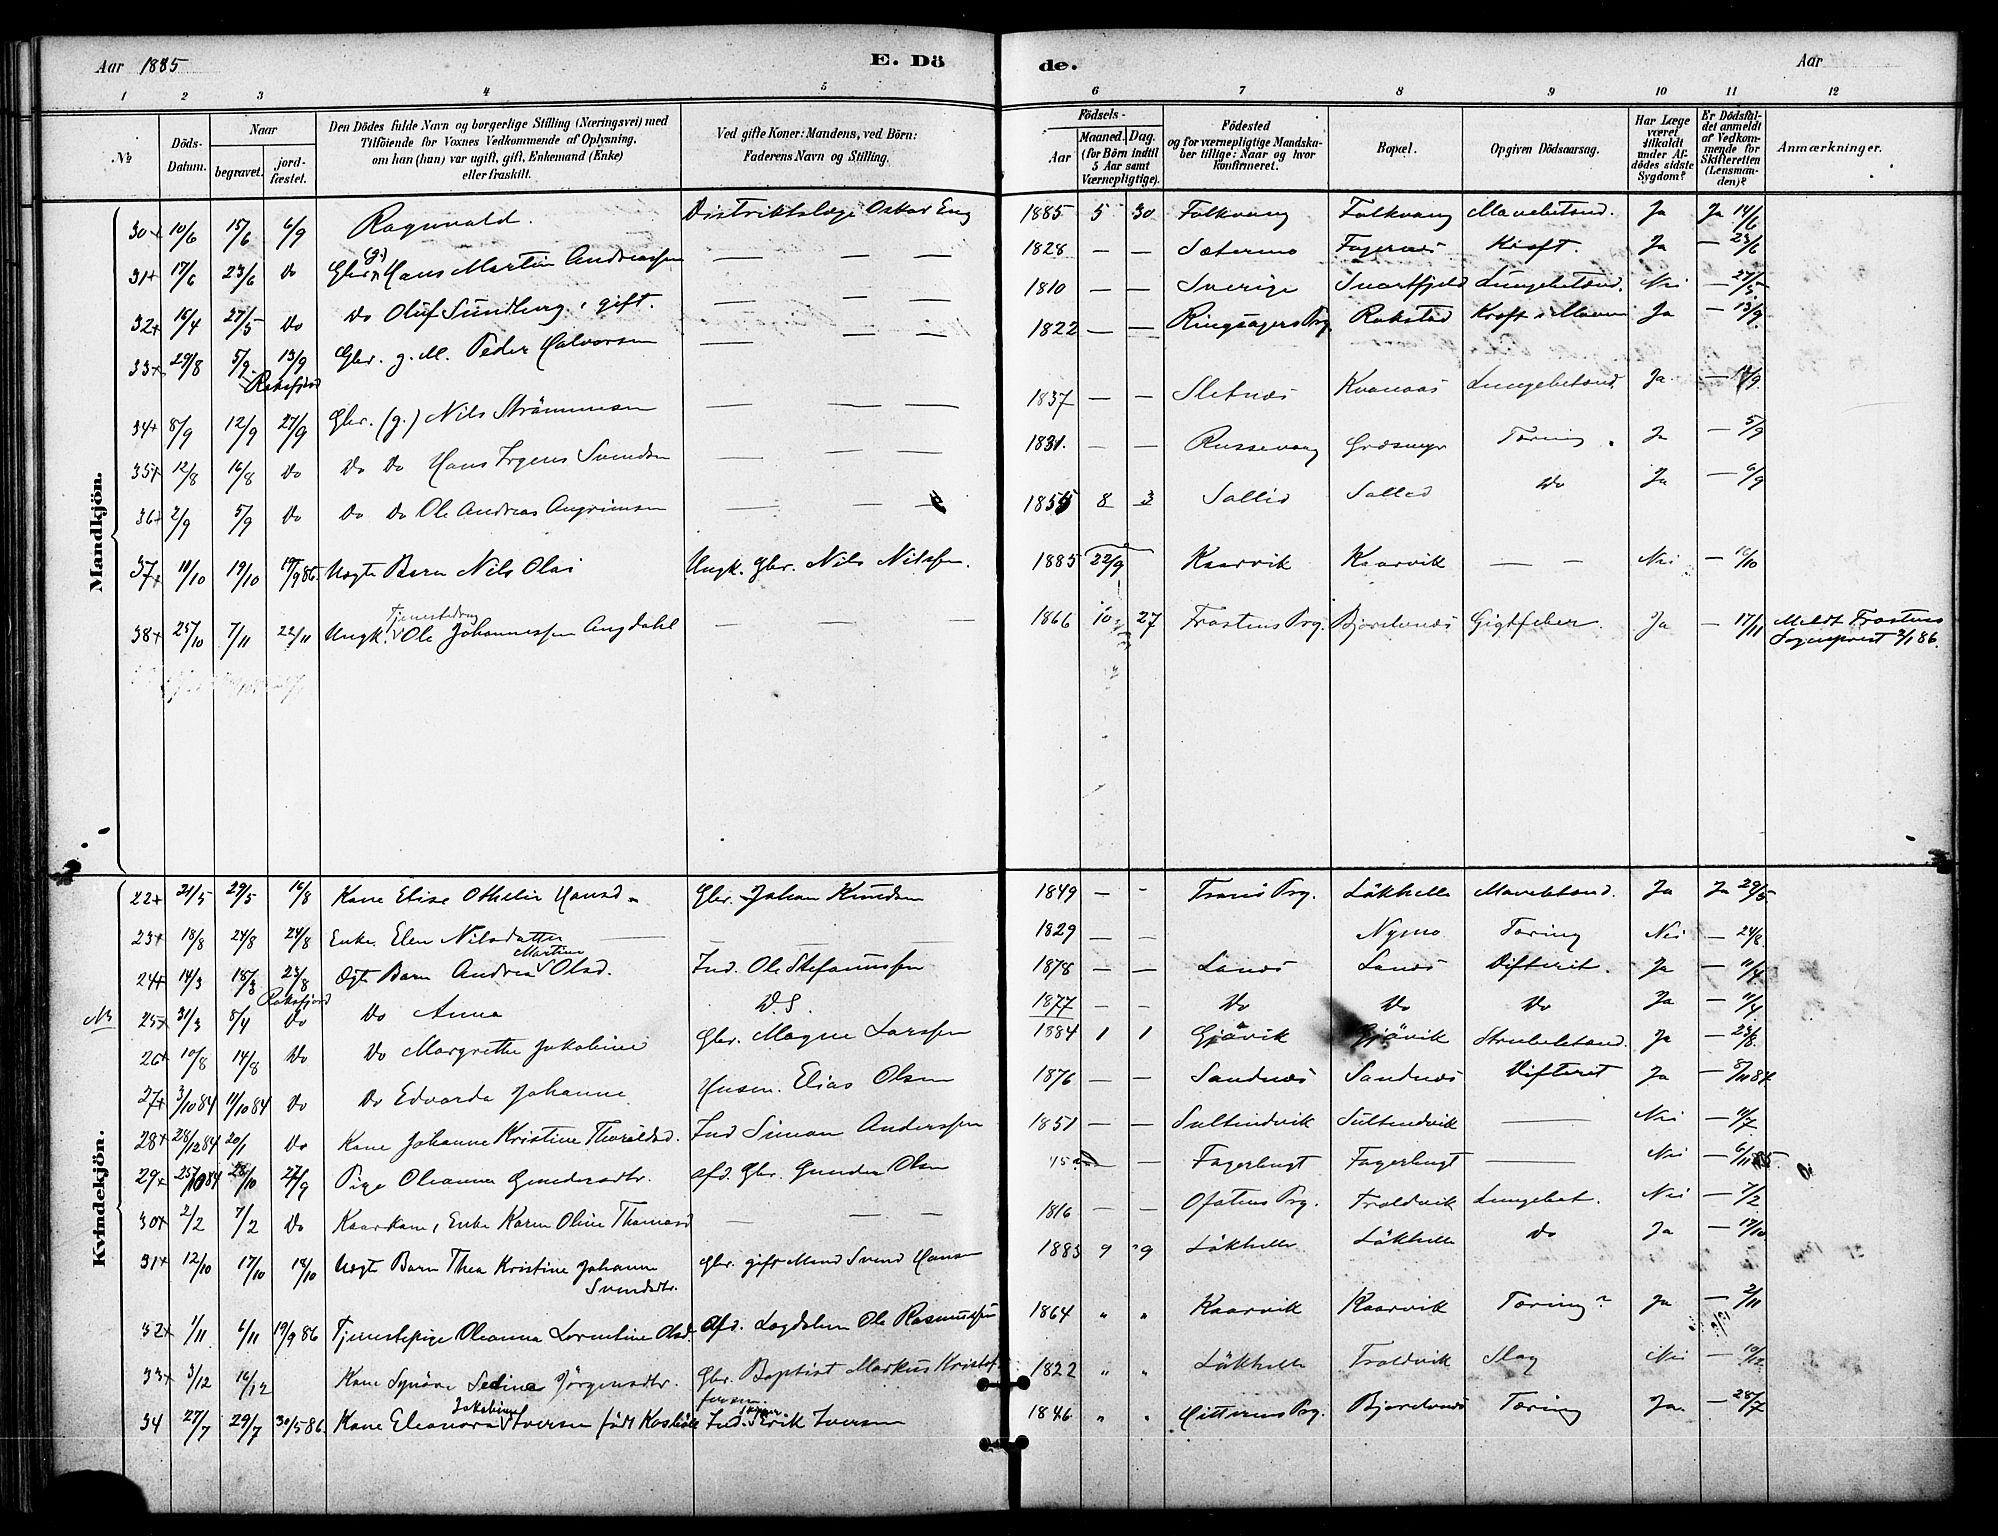 Aar 1885 E. Döde. Aar
1 2 3 4 5 6 7 8 9 10 11 12
No Döds-Datum. Naar begravet. jord-fæstet. Den Dödes fulde Navn og borgerlige Stilling (Næringsvei) med Tilföiende for Voxnes Vedkommende af Oplysning, om han (hun) var ugift, gift, Enkemand (Enke) eller fraskilt. Ved gifte Koner: Mandens, ved Börn: Faderens Navn og Stilling. Födsels- Aar Maaned. Dag. (for Börn indtil 5 Aar samt Værnepligtige). Födested og for værnepligtige Mandskaber tillige: Naar og hvor konfirmeret. Bopæl. Opgiven Dödsaarsag. Har Læge været tilkaldt under Afdödes sidste Sygdom? Er Dödsfaldet anmeldt af Vedkommende for Skifteretten (Lensmanden)? Anmærkninger.
Mandkjön.
30+ 10/6 15/6 6/9 Ragnvald. Distriktslæge Oskar Eng 1885 5 30 Folkvang Folkvang Mavebetænd. Ja Ja 14/6
31+ 17/6 23/6 Do Gbr. (g.) Hans Martin Andreassen — — — 1828 — — Sætermo Fagernæs Kræft. Ja — 23/6
32+ 16/4 27/5 Do Do Oluf Sundberg, gift. — — — 1810 — — Sverige Svartfjeld Lungebetænd. Nei — 27/5
33+ 29/8 5/9 13/9 Raksfjord Gbr. g. M. Peder Halvorsen — — — 1822 — — Ringsagers Prg. Rakstad Kræft i Maven Ja — 13/9
34+ 8/9 12/9 27/9 Gbr. (g.) Nils Strømmesen — — — 1837 — — Sletnæs Kvanaas Lungebetænd. Ja — /9
35+ 12/8 16/8 Do Do Do Hans Irgens Svendsen — — — 1831. — — Russevaag Græsmyr Tæring. Ja — 5/9
36+ 2/9 5/9 Do Do Do Ole Andreas Angrimsen — — — 1855 8 3 Sollid Sollid Do Ja — 6/9
37+ 10/10 19/10 19/9 86. Uægte Barn Nils Olai Ungk. Gbr. Nils Nilssen. 1885 22/9 Kaarvik Kaarvik — — Nei — 16/10
38+ 25/10 7/11 22/11 Ungk. Tjenestedreng Ole Johannessen Angdahl — — — 1866 10 27 Frostens Prg. Bjorelvnæs Gigtfeber. Ja — 17/11 Meldt Frostens
Sogneprest 2/1 86.
Kvindekjön.
22+ 21/5 29/5 16/8 Kone Elise Othelie Hansd. Gbr. Johan Knudsen 1849 — - Tranø Prg. Løkhelle Mavebetænd. Ja Ja 29/5
23+ 18/8 24/8 24/8 Enke Elen Nilsdatter — — 1829 — — Nymo Tæring Nei — 24/8
24+ 14/3 18/3 23/8 Raksfjord Ægte Barn Andrea Martine Olsd. Ind. Ole Stefanussen 1878 — — Lanæs Lanæs Difterit. Ja — 11/4
NB 25+ 31/3 8/4 Do Do Anna D. S. 1877 — — Do Do Do Ja — 11/4
26+ 10/8 14/8 Do Do Margrethe Jakobine Gbr. Magne Larssen 1884 1 1 Gjøvik Gjøvik Strubebetænd. Ja — 23/8
27+ 3/10 84 11/10 84 Do Do Edvarda Johanne Husm. Elias Olsen 1876 — — Sandnæs Sandnæs Difterit Ja — 8/11 84
28+ 28/12 84 20/1 Do Kone Johanne Kristine Thoraldsd. Ind Simon Anderssen 1851 — — Sultindvik Sultindvik — Nei — 11/7
29+ 25/10 84 28/10 27/9 Pige Oleanna Gundersdtr. afd. Gbr. Gunder Olsen 45 — — Fagerbugt Fagerbugt — Nei — 6/11 85.
30+ 2/2 7/2 Do Kaarkone, Enke Karen Oline Thomasd — — — 1816 — — Ofotens Prg. Troldvik Lungebet. Nei — 7/2
31+ 12/10 17/10 18/10 Uægte Barn Thea Kristine Johanne
Svendsdtr. Gbr. gift Mand Svend Hansen 1883 9 9 Løkhelle Løkhelle Do Ja — 17/10
32+ 1/11 6/11 19/9 86 Tjenestepige Oleanna Lorentine Olsd. Afd. Lægdslem Ole Rasmussen 1864 " " Kaarvik Kaarvik Tæring? Ja — 2/11
33+ 3/12 16/12 Kone Synøve Sedine Jørgensdtr. Gbr. Baptist Markus Kristof-
fersen. 1822 " " Løkhelle Troldvik Slag Nei — 10/12
34 27/7 29/7 30/5 86. Kone Eleanora Jakobine Iversen født Ind. Erik Iversen 1846. " " Hitterens Prg. Bjorelvnæs Tæring Ja. — 28/7